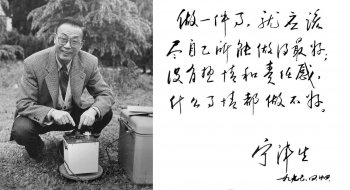 做一件事，就应该
尽自己所能做得最好，
没有热情和责任感，
什么事情都做不好。
宁津生